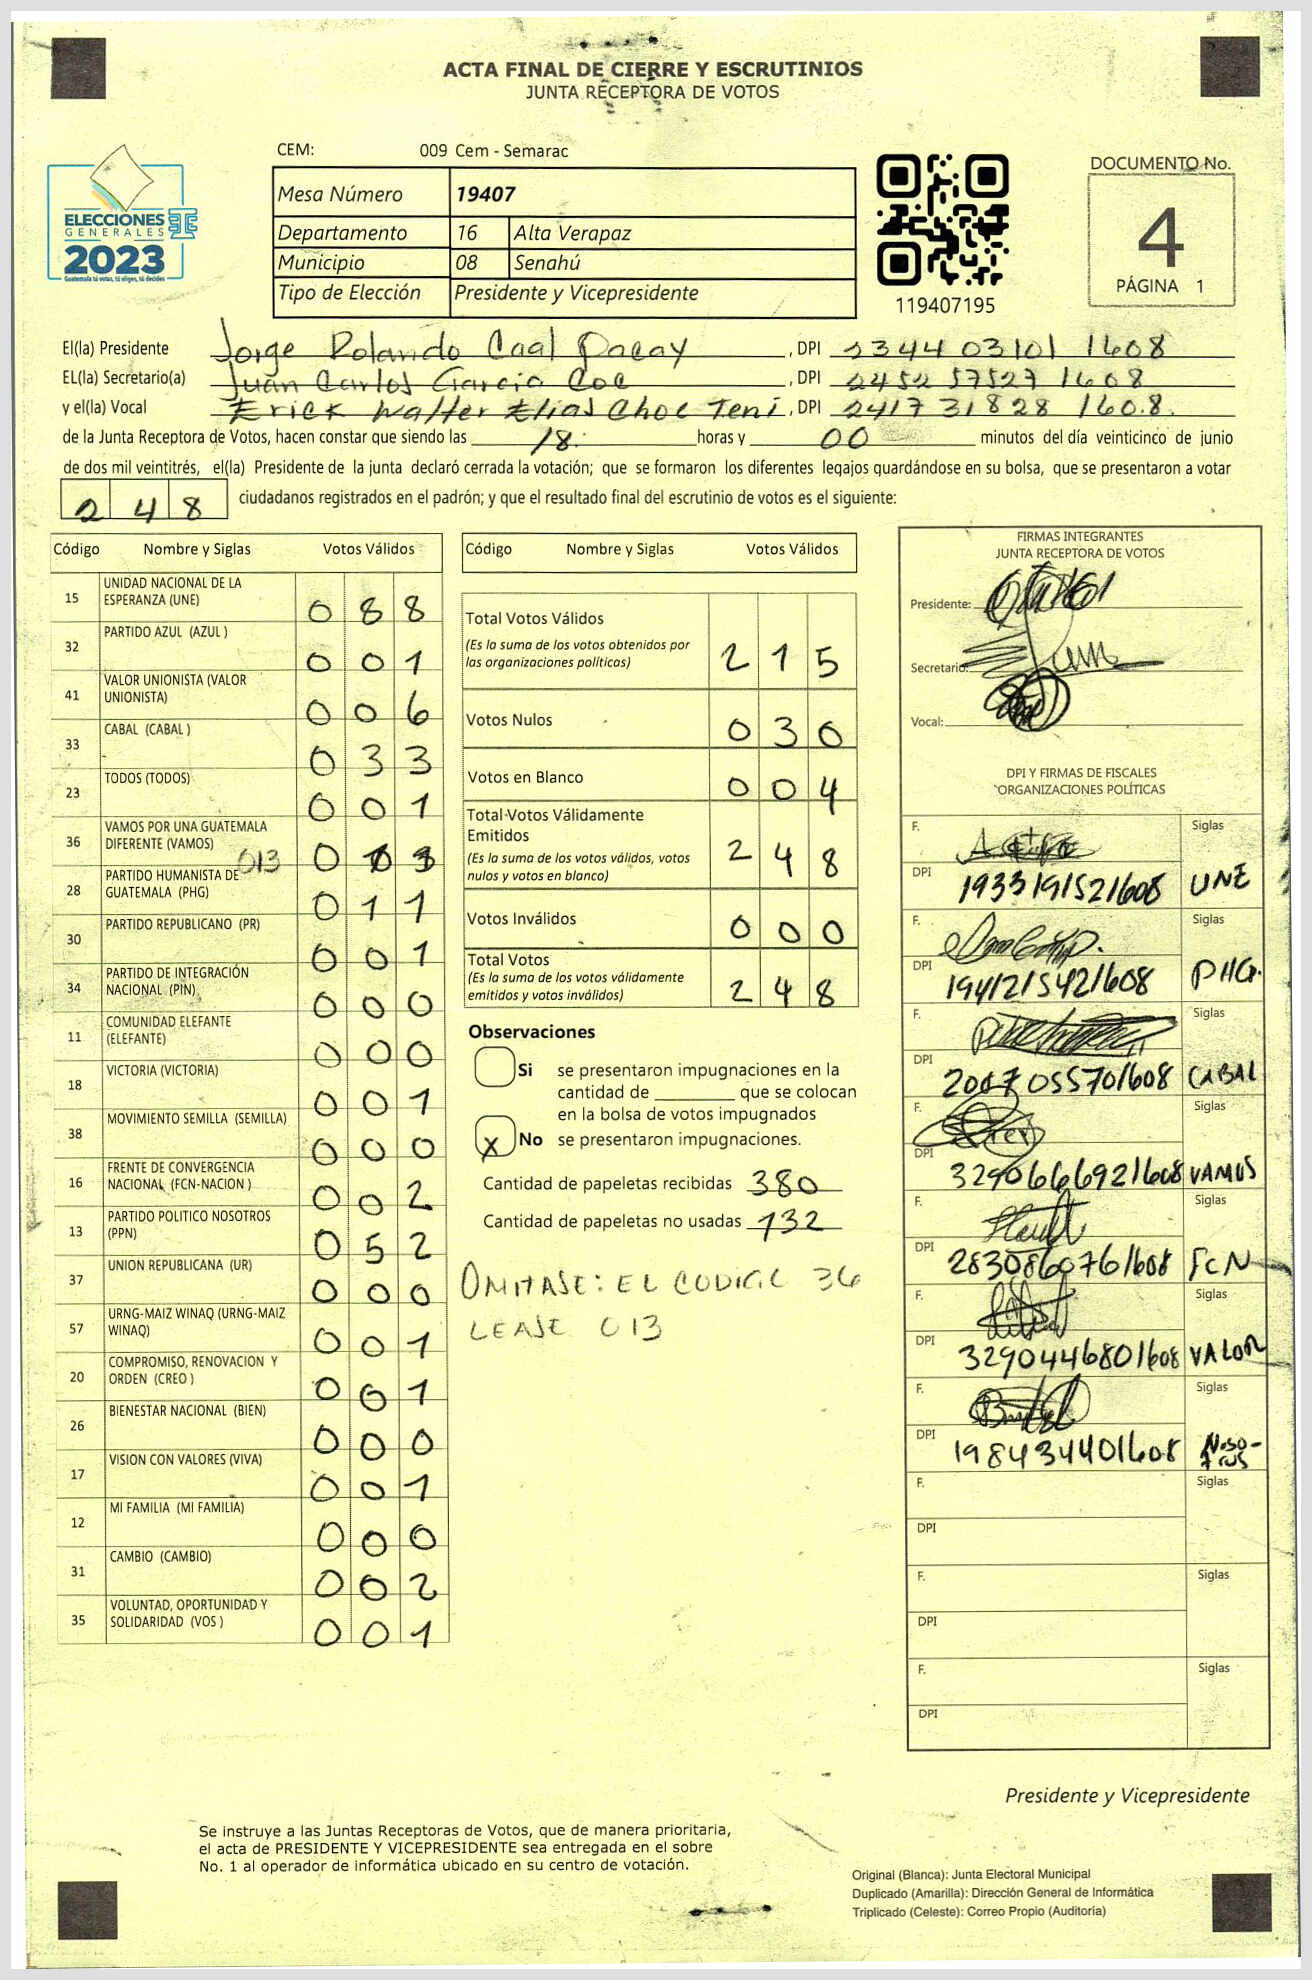 ACTA FINAL DE CIERRE Y ESCRUTINIOS
JUNTA RECEPTORA DE VOTOS
ELECCIONES
GENERALES
2023
Guatemala tú votas, tú eliges, tú decides
CEM: 009 Cem - Semarac
Mesa Número 19407
Departamento 16 Alta Verapaz
Municipio 08 Senahú
Tipo de Elección Presidente y Vicepresidente
119407195
DOCUMENTO No.
4
PÁGINA 1
El(la) Presidente Jorge Rolando Caal Pacay, DPI 2344 03101 1608
EL(la) Secretario(a) Juan Carlos Garcia Coc, DPI 2452 57527 1608
y el(la) Vocal Erick Walter Elias Choc Teni, DPI 2417 31828 1608.
de la Junta Receptora de Votos, hacen constar que siendo las 18: horas y 00 minutos del día veinticinco de junio
de dos mil veintitrés, el(la) Presidente de la junta declaró cerrada la votación; que se formaron los diferentes legajos guardándose en su bolsa, que se presentaron a votar
248 ciudadanos registrados en el padrón; y que el resultado final del escrutinio de votos es el siguiente:
Código Nombre y Siglas Votos Válidos
15 UNIDAD NACIONAL DE LA ESPERANZA (UNE) 088
32 PARTIDO AZUL (AZUL ) 001
41 VALOR UNIONISTA (VALOR UNIONISTA) 006
33 CABAL (CABAL ) 033
23 TODOS (TODOS) 001
36 VAMOS POR UNA GUATEMALA DIFERENTE (VAMOS) 013 013
28 PARTIDO HUMANISTA DE GUATEMALA (PHG) 011
30 PARTIDO REPUBLICANO (PR) 001
34 PARTIDO DE INTEGRACIÓN NACIONAL (PIN) 000
11 COMUNIDAD ELEFANTE (ELEFANTE) 000
18 VICTORIA (VICTORIA) 001
38 MOVIMIENTO SEMILLA (SEMILLA) 000
16 FRENTE DE CONVERGENCIA NACIONAL (FCN-NACION ) 002
13 PARTIDO POLITICO NOSOTROS (PPN) 052
37 UNION REPUBLICANA (UR) 000
57 URNG-MAIZ WINAQ (URNG-MAIZ WINAQ) 001
20 COMPROMISO, RENOVACION Y ORDEN (CREO ) 001
26 BIENESTAR NACIONAL (BIEN) 000
17 VISION CON VALORES (VIVA) 001
12 MI FAMILIA (MI FAMILIA) 000
31 CAMBIO (CAMBIO) 002
35 VOLUNTAD, OPORTUNIDAD Y SOLIDARIDAD (VOS ) 001
Código Nombre y Siglas Votos Válidos
Total Votos Válidos
(Es la suma de los votos obtenidos por
las organizaciones políticas) 215
Votos Nulos 030
Votos en Blanco 004
Total Votos Válidamente
Emitidos
(Es la suma de los votos válidos, votos
nulos y votos en blanco) 248
Votos Inválidos 000
Total Votos
(Es la suma de los votos válidamente
emitidos y votos inválidos) 248
Observaciones
Si se presentaron impugnaciones en la
cantidad de ________ que se colocan
en la bolsa de votos impugnados
X No se presentaron impugnaciones.
Cantidad de papeletas recibidas 380
Cantidad de papeletas no usadas 132
OMITASE: EL CODIGO 36
LEASE 013
FIRMAS INTEGRANTES
JUNTA RECEPTORA DE VOTOS
Presidente:
Secretario:
Vocal:
DPI Y FIRMAS DE FISCALES
ORGANIZACIONES POLÍTICAS
F. Siglas
DPI 1933191521608 UNE
F. Siglas
DPI 1941215421608 PHG.
F. Siglas
DPI 2007055701608 CABAL
F. Siglas
DPI 3290666921608 VAMOS
F. Siglas
DPI 2830860761608 FCN
F. Siglas
DPI 3290446801608 VALOR
F. Siglas
DPI 198434401608 Noso-
tros
F. Siglas
DPI
F. Siglas
DPI
F. Siglas
DPI
Presidente y Vicepresidente
Se instruye a las Juntas Receptoras de Votos, que de manera prioritaria,
el acta de PRESIDENTE Y VICEPRESIDENTE sea entregada en el sobre
No. 1 al operador de informática ubicado en su centro de votación.
Original (Blanca): Junta Electoral Municipal
Duplicado (Amarilla): Dirección General de Informática
Triplicado (Celeste): Correo Propio (Auditoría)